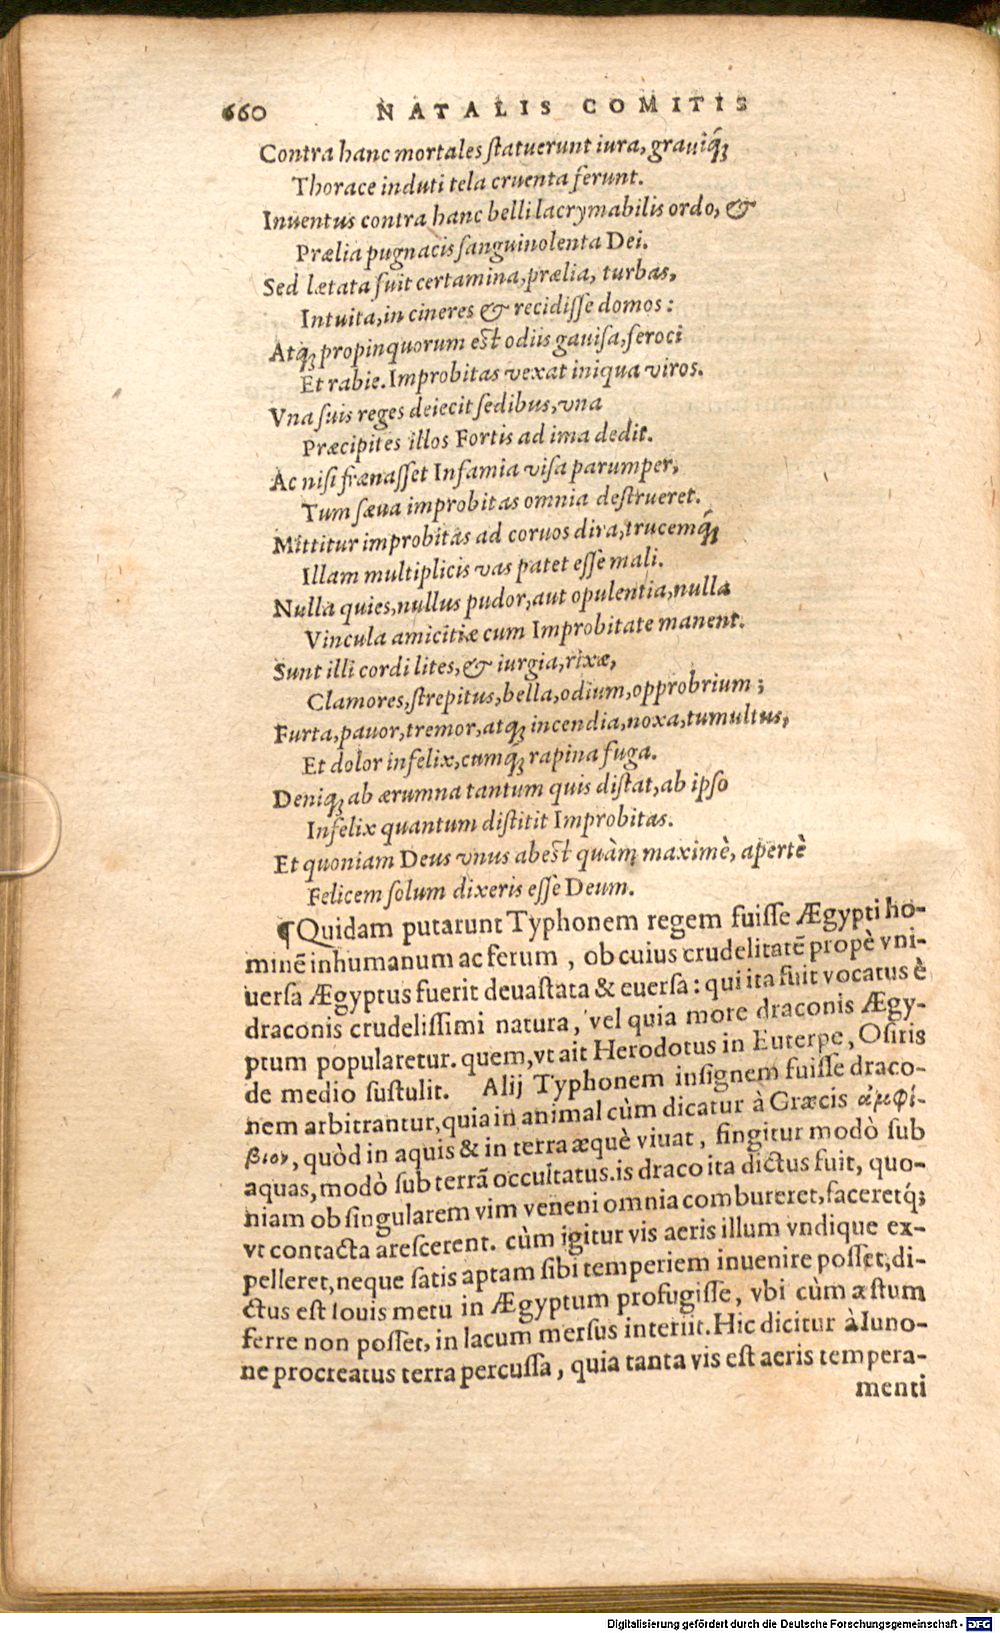 660 NATALIS COMITIS
Contra hanc mortales ſtatuerunt iura, grauiq́;
Thorace induti tela cruenta ferunt.
Inuentus contra hanc belli lacrymabilis ordo, &
Prælia pugnacis ſanguinolenta Dei.
Sed lætata fuit certamina, prælia, turbas,
Intuita, in cineres & recidiſſe domos:
Atq; propinquorum eſt odiis gauiſa, feroci
Et rabie. Improbitas vexat iniqua viros.
Vna ſuis reges deiecit ſedibus, vna
Præcipites illos Fortis ad ima dedit.
Ac niſi frænaſſet Infamia viſa parumper,
Tum ſæua improbitas omnia deſtrueret.
Mittitur improbitas ad coruos dira, trucemq́;
Illam multiplicis vas patet eſſe mali.
Nulla quies, nullus pudor, aut opulentia, nulla
Vincula amicitiæ cum Improbitate manent.
Sunt illi cordi lites, & iurgia, rixæ,
Clamores, ſtrepitus, bella, odium, opprobrium;
Furta, pauor, tremor, atq; incendia, noxa, tumultus,
Et dolor infelix, cumq́; rapina fuga.
Deniq; ab ærumna tantum quis diſtat, ab ipſo
Infelix quantum diſtitit Improbitas.
Et quoniam Deus vnus abeſt quàm maximè, apertè
Felicem ſolum dixeris eſſe Deum.
¶Quidam putarunt Typhonem regem fuiſſe Ægypti ho-
minē inhumanum ac ferum, ob cuius crudelitatē propè vni-
uerſa Ægyptus fuerit deuaſtata & euerſa: qui ita fuit vocatus è
draconis crudeliſſimi natura, vel quia more draconis Ægy-
ptum popularetur. quem, vt ait Herodotus in Euterpe, Oſiris
de medio ſuſtulit. Alij Typhonem inſignem fuiſſe draco-
nem arbitrantur, quia in animal cùm dicatur à Græcis ἀμφί-
βιον, quòd in aquis & in terra æquè viuat, fingitur modò ſub
aquas, modò ſub terrā occultatus. is draco ita dictus fuit, quo-
niam ob ſingularem vim veneni omnia combureret, faceretq́;
vt contacta areſcerent. cùm igitur vis aeris illum vndique ex-
pelleret, neque ſatis aptam ſibi temperiem inuenire poſſet, di-
ctus eſt Iouis metu in Ægyptum profugiſſe, vbi cùm æſtum
ferre non poſſet, in lacum merſus interiit. Hic dicitur à Iuno-
ne procreatus terra percuſſa, quia tanta vis eſt aeris tempera-
menti
Digitalisierung gefördert durch die Deutsche Forschungsgemeinschaft - DFG